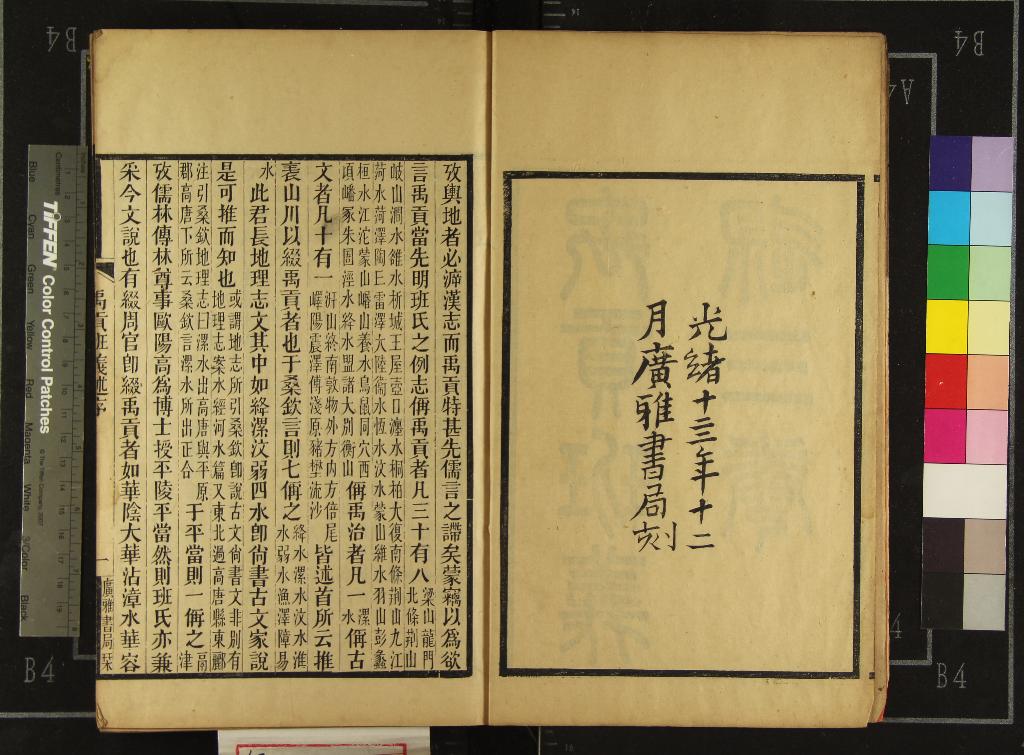 光緒十三年十二
月廣雅書局刻
攷輿地者必諦漢志而禹貢特甚先儒言之諦矣蒙竊以爲欲
言禹貢當先明班氏之例志偁禹貢者凡三十有八梁山龍門北條荆山
岐山澗水雒水析城王屋壺口瀍水桐柏大復南條荆山九江
菏水菏澤陶丘雷澤大陸衞水恆水汶水蒙山維水羽山彭蠡
桓水江沱蒙山崏山養水鳥鼠同穴西頃嶓冢朱圉涇水終水盟諸大別衡山偁禹治者凡一漯水偁古
文者凡十有一汧山終南敦物外方内方倍尾嶧陽震澤傅淺原豬壄流沙皆述首所云推
表山川以綴禹貢者也于桑欽言則七偁之絳水漯水汶水淮水弱水漁澤障易
水此君長地理志文其中如絳漯汶弱四水卽尙書古文家說
是可推而知也或謂地志所引桑欽卽說古文尙書文非別有地理志案水經河水篇又東北過高唐縣東酈
注引桑欽地理志曰漯水出高唐與平原郡高唐下所云桑欽言漯水所出正合于平當則一偁之鬲津
攷儒林傳林尊事歐陽高爲博士授平陵平當然則班氏亦兼
采今文說也有綴周官卽綴禹貢者如華陰大華沾漳水華容
禹貢班義述序
一
廣雅書局栞
TIFFEN Color Control Patches
Blue
Cyan
Green
Yellow
Red
Magenta
White
3/Color
Black
B4
B4
B4
B4